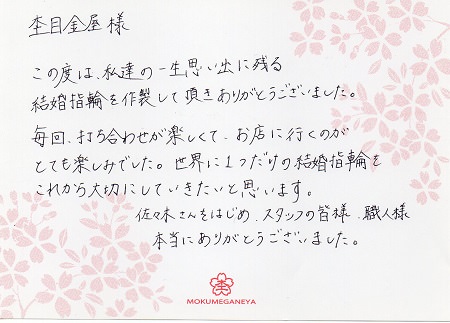 杢目金屋 様
この度は、私達の一生思い出に残る
結婚指輪を作製して頂きありがとうございました。
毎回、打ち合わせが楽しくて、お店に行くのが
とても楽しみでした。世界に1つだけの結婚指輪を
これから大切にしていきたいと思います。
佐々木さんをはじめ、スタッフの皆様、職人様
本当にありがとうございました。
杢
MOKUMEGANEYA